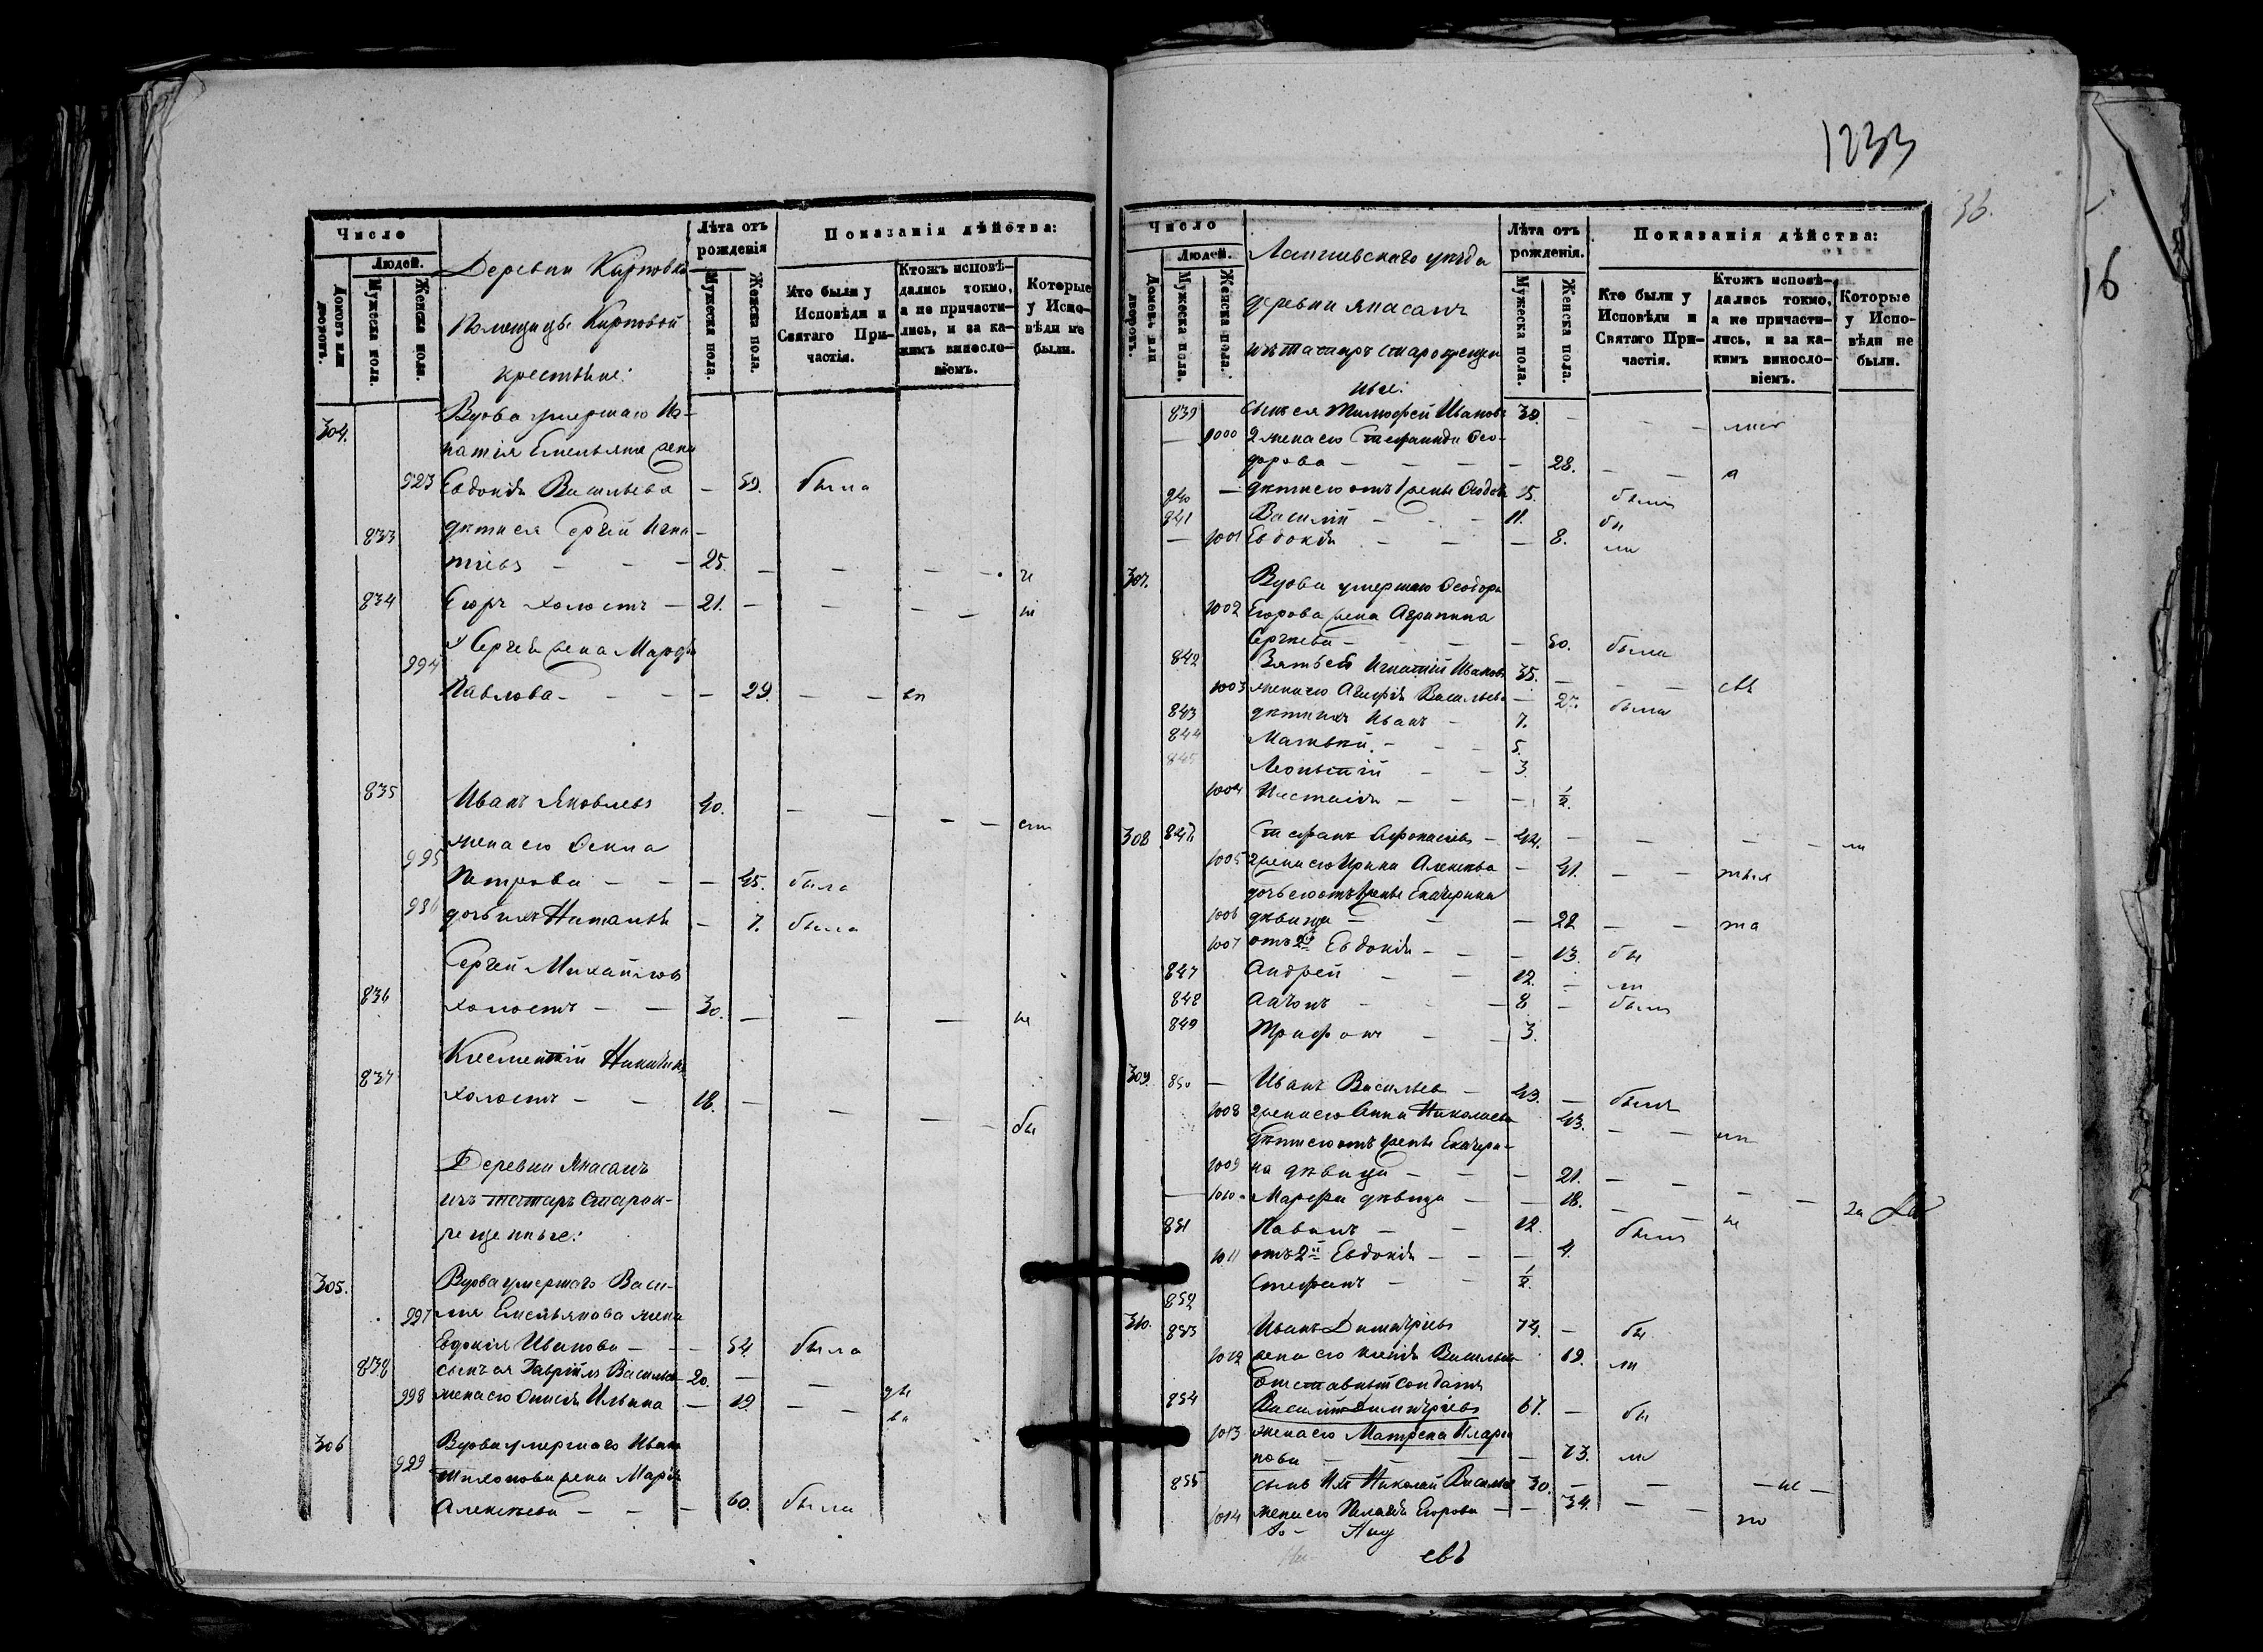 Число
Людей.
Домовъ или дворовъ.
Мужеска пола.
Женска пола.
Деревни Карповка
Помещицы Карповой
крестьяне:
Лѣта отъ рожденія
Мужеска пола.
Женска пола.
Показанія дѣйства:
Кто были у Исповѣди и Святаго Причастія.
Ктожъ исповѣдались токмо, а не причастились, и за какимъ винословіемъ.
Которые у Исповѣди не были.
304.
Вдова умершаго Иг-
натія Емельяна жена
923 Евдокія Васильева — 59. была
833 дѣти ея Сергѣй Игна-
тіевъ — — — 25. — — —
834 Егоръ холостъ — 21. — — —
У Сергѣя жена Марфа
994 Павлова — — — — 29. — —
835 Иванъ Яковлевъ 40. — — — —
жена его
995 Петрова — — — 45. была
996 дочь ихъ Наталья — 7. была
Сергѣй Михайловъ
836 холостъ — — 30. — — — не
Климентій
837 холостъ — — 18. — — — бы
Деревни Янасалъ
изъ татаръ старок-
рещенные:
305. Вдова умершаго Васи-
997 лія Емельянова жена
Евдокія Иванова — — 54. была
838 сынъ ея Гавріилъ Васильев 20. — —
998 жена его Ильина — 19. — —
306 Вдова умершаго Ивана
999 жена Марія
Алексѣева — — — 60. была
1233
36.
16
Число
Людей.
Домовъ или дворовъ.
Мужеска пола.
Женска пола.
Лаишевскаго уѣзда
деревни Янасалъ
изъ татаръ старокрещен
ные:
Лѣта отъ рожденія.
Мужеска пола.
Женска пола.
Показанія дѣйства:
Кто были у Исповѣди и Святаго Причастія.
Ктожъ исповѣдались токмо, а не причастились, и за какимъ винословіемъ.
Которые у Исповѣди не были.
839 сынъ ея Тимофей Ивановъ 30. — — —
— 1000 2 жена его Стефанида Фео-
дорова — — — — 28. — —
840 — дѣти его отъ 1 жены 15. были
841 Василій — — — 11. бы
— 1001 Евдокія — — — 8. ли
307. Вдова умершаго Феодора
1002 Егорова жена Агрипина
Сергѣева — — — — 50. была
842 Зять ея Игнатій Ивановъ 35. — — —
1003 жена его Агафія Васильева — 27. была
843 дѣти ихъ Иванъ — 7.
844 Матвѣй. — — — 5.
845 Леонтій — — 3.
1004 Настасія — — — ½.
308 846 Стефанъ Афонасіевъ — 44. — — — —
1005 2 жена его Ирина Алексѣева — 41. — —
дочь его отъ 1 жены Екатерина
1006 дѣвица — — — 22 — —
1007 отъ 2й Евдокія — — — 13. бы
847 Андрей — — 12. — ли
848 — — 8 — были
849 Трифонъ — — 3.
309. 850 — Иванъ Васильев — 43. — былъ
1008 2 жена его Анна Николаева 43. — —
дѣти его отъ жены Екатери-
1009 на дѣвица — — — 21. — — —
— 1010 Марфа дѣвица — — 18. — — не
851 Павелъ — — 12. были
1011 отъ 2й Евдокія — — — 4.
852 Стефанъ — — ½.
310. 853 Иванъ Димитріевъ 74. — бы
1012 жена его Васильева 69. ли
Отставный солдатъ
854 Василій Димитріевъ 67. — бы
1013 жена его Матрена Иларіо
нова — — — — 73. ли
855 сынъ ихъ Николай Васильев 30. — — — не —
1014 жена его Пелагія Егорова — — 34. — —